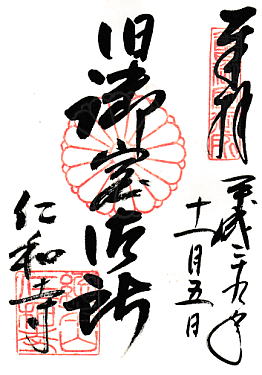 奉拝
平成二十九年
十一月五日
旧御室御所
仁和寺